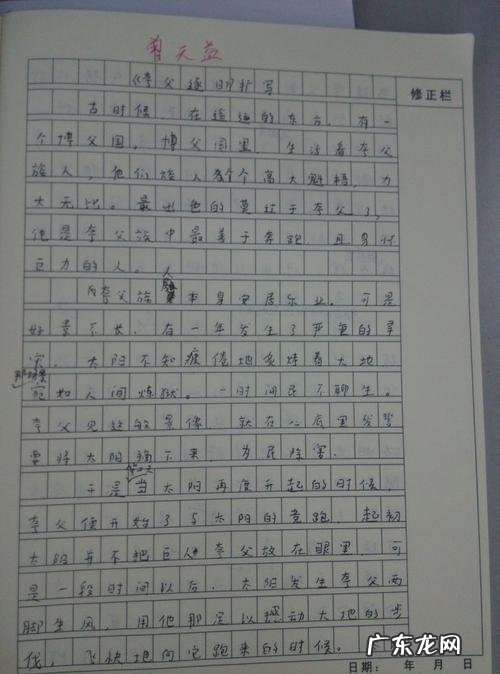 曾天益
《夸父逐日》扩写
修正栏
古时候,在遥远的东方,有一
个博父国,博父国里,生活着夸父
族人,他们族人各个高大魁梧,力
大无比。最出色的莫过于夸父了,
他是夸父族中最善于奔跑,且身怀
巨力的人。
夸父族人本身安居乐业。可是
好景不长,有一年发生了严重的旱
灾,太阳不知疲倦地炙烤着大地,
宛如人间炼狱。一时间民不聊生。
夸父见这的景像,就在心底里发誓
要将太阳摘下来,为民除害。
于是当太阳再度升起的时候,
夸父便开始了与太阳的竞跑,起初
太阳并不把巨人夸父放在眼里,可
是一段时间以后,太阳发生夸父两
脚生风,用他那足以撼动大地的步
伐,飞快地向它跑来的时候。
日期: 年 月 日
广东龙网